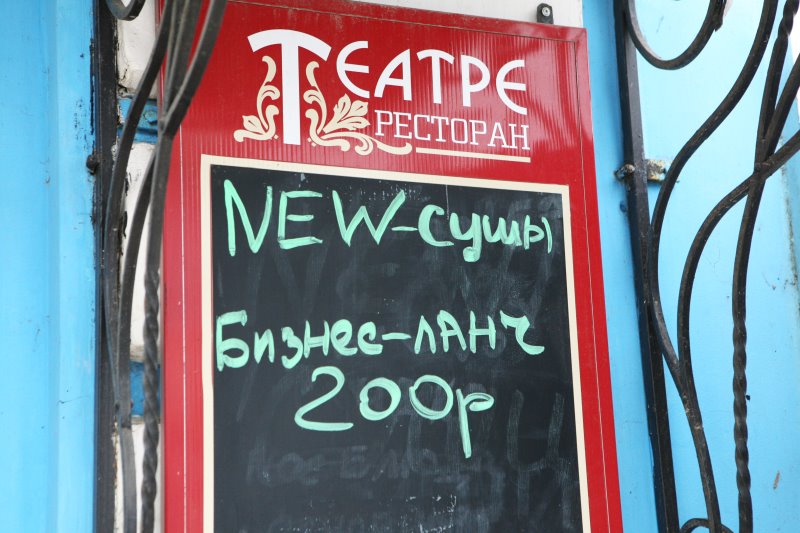 ТЕАТРЕ
РЕСТОРАН
NEW-сушы
Бизнес-ЛАНЧ
200р